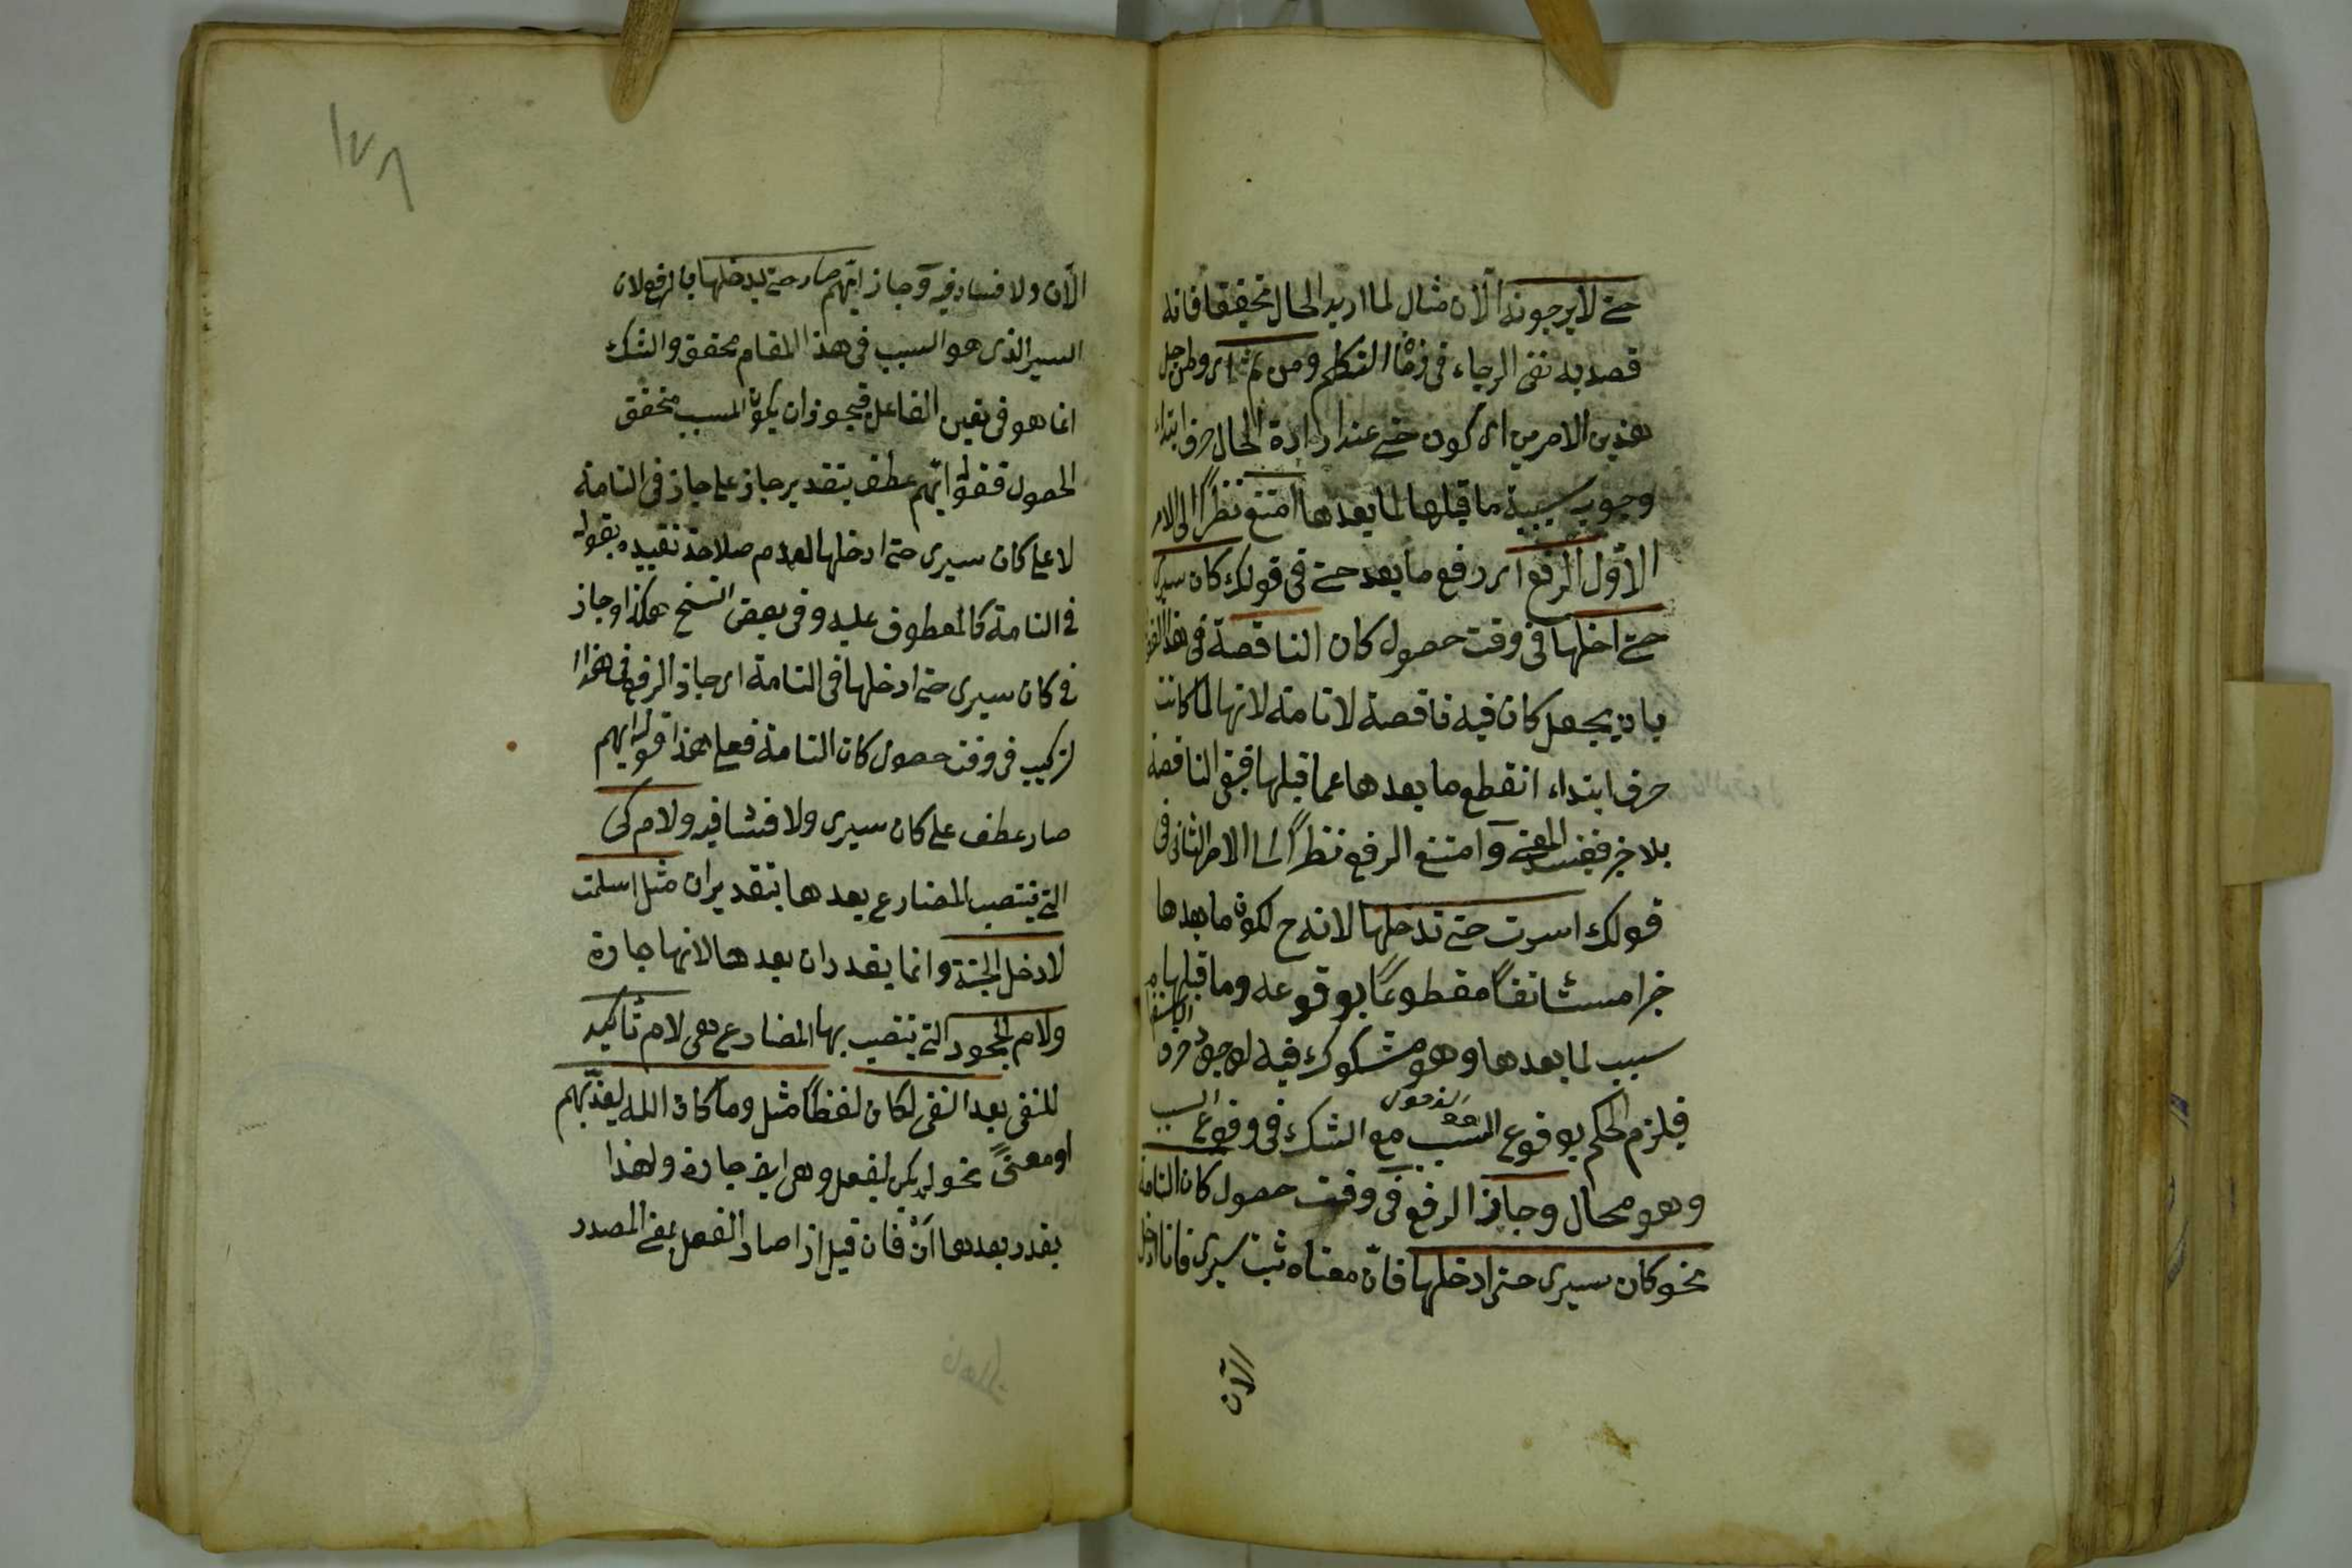 حتى لا يرجونه الآن مثال لما اريد الحال تحقيقا فانه
قصد به نفى الرجاء فى زمان التكلم ومن ثم اى ومن اجل
هذين الامرين اى كون حتى عند ارادة الحال حرف ابتداء
وجوب سببية ما قبلها لما بعدها امتنع نظرًا الى الامر
الاوّل الرفع اى رفع ما بعد حتى فى قولك كان سيرى
حتى ادخلها فى وقت حصول كان الناقصة فى هذا القول
بان يجعل كان فيه ناقصة لا تامة لانها لما كانت
حرف ابتداء انقطع ما بعدها عما قبلها فبقى الناقصة
بلا خبر ففسد المعنى وامتنع الرفع نظرًا الى الامر الثانى فى
قولك اسرت حتى تدخلها لانه ح لكون ما بعدها
خبرا مستانفًا مقطوعًا بوقوعه وما قبلها
سبب لما بعدها وهو مشكوك فيه لوجود حرف الاستفهام
فيلزم الحكم بوقوع المسبب مع الشك فى وقوع السبب
الدخول
وهو محال وجاز الرفع فى وقت حصول كان التامة
نحو كان سيرى حتى ادخلها فانّ معناه ثبت سيرى فانا ادخل
الآن
١٧٨
الآن ولا فساد فيه وجاز ايّهم سار حتى يدخلها بالرفع لان
السير الذى هو السبب فى هذا المقام محقق والشك
انما هو فى تعين الفاعل فيجوز ان يكون المسبب متحقق
الحصول فقوله ايّهم عطف بتقدير جاز على جاز فى التامة
لا على كان سيرى حتى ادخلها لعدم صلاحة تقييده بقوله
فى التامة كالمعطوف عليه وفى بعض النسخ هكذا وجاز
فى كان سيرى حتى ادخلها فى التامة اى جاز الرفع فى هذا ا
لتركيب فى وقت حصول كان التامة فعلى هذا قوله ايهم
سار عطف على كان سيرى ولا فساد فيه ولام كى
التى ينتصب المضارع بعدها بتقدير ان مثل اسلمت
لادخل الجنة وانما يقدر ان بعدها لانها جارة
ولام الجحود التى ينتصب بها المضارع هى لام تأكيد
للنفى بعد النفى لكان لفظًا مثل وما كان الله ليعذّبهم
او معنىً نحو لم يكن ليفعل وهى ايضا جارة ولهذا
يقدر بعدها اَنْ فان قيل اذا صار الفعل بمعنى المصدر